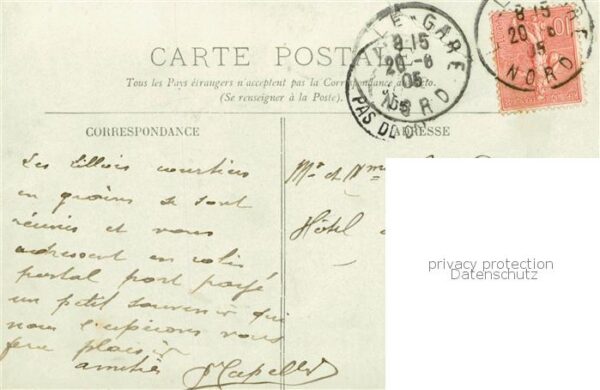 CARTE POSTALE
Tous les Pays étrangers n'acceptent pas la Correspondance au recto.
(Se renseigner à la Poste).
LILLE-GARE
8 15
20 -6
05
NORD
LILLE-GARE
8 15
20 -6
05
NORD
PAS DE
10
CORRESPONDANCE
ADRESSE
Les Lillois courtiers
en grains se sont
réunis et vous
adressent en colis
postal port payé
un petit souvenir qui
nous l'espérons vous
fera plaisir
amitiés
Mr et Mme
Hôtel
privacy protection
Datenschutz